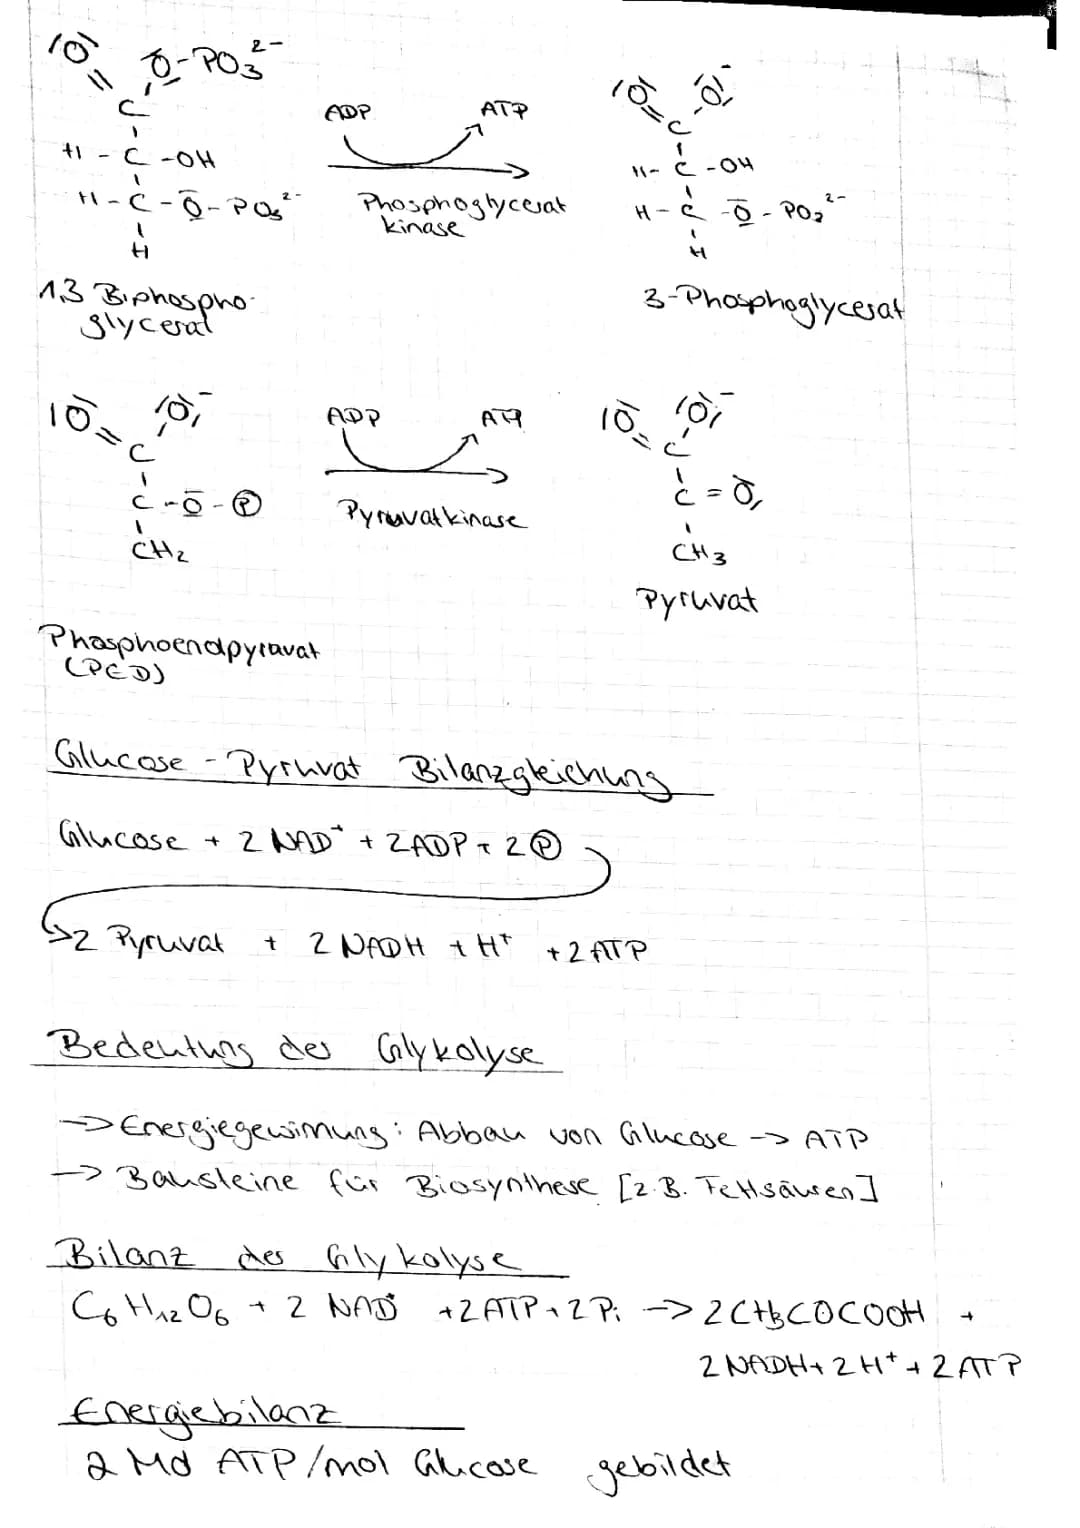 |O| O-PO3 2-
C
H-C-OH
H-C-O-PO3 2-
H
1,3 Biphospho-
glycerat
ADP ATP
Phosphoglycerat
kinase
|O| |O|-
C
H-C-OH
H-C-O-PO3 2-
H
3-Phosphoglycerat
|O |O|-
C
C-O-P
CH2
Phosphoenolpyruvat
(PEP)
ADP ATP
Pyruvatkinase
|O |O|-
C
C=O
CH3
Pyruvat
Glucose - Pyruvat Bilanzgleichung
Glucose + 2 NAD+ + 2ADP + 2 P
→2 Pyruvat + 2 NADH + H+ + 2 ATP
Bedeutung der Glykolyse
→ Energiegewinnung: Abbau von Glucose → ATP
→ Bausteine für Biosynthese [z.B. Fettsäuren]
Bilanz der Glykolyse
C6H12O6 + 2 NAD+ +2ATP+2Pi → 2CH3COCOOH +
2NADH+2H+ + 2ATP
Energiebilanz
2 Mol ATP/mol Glucose gebildet